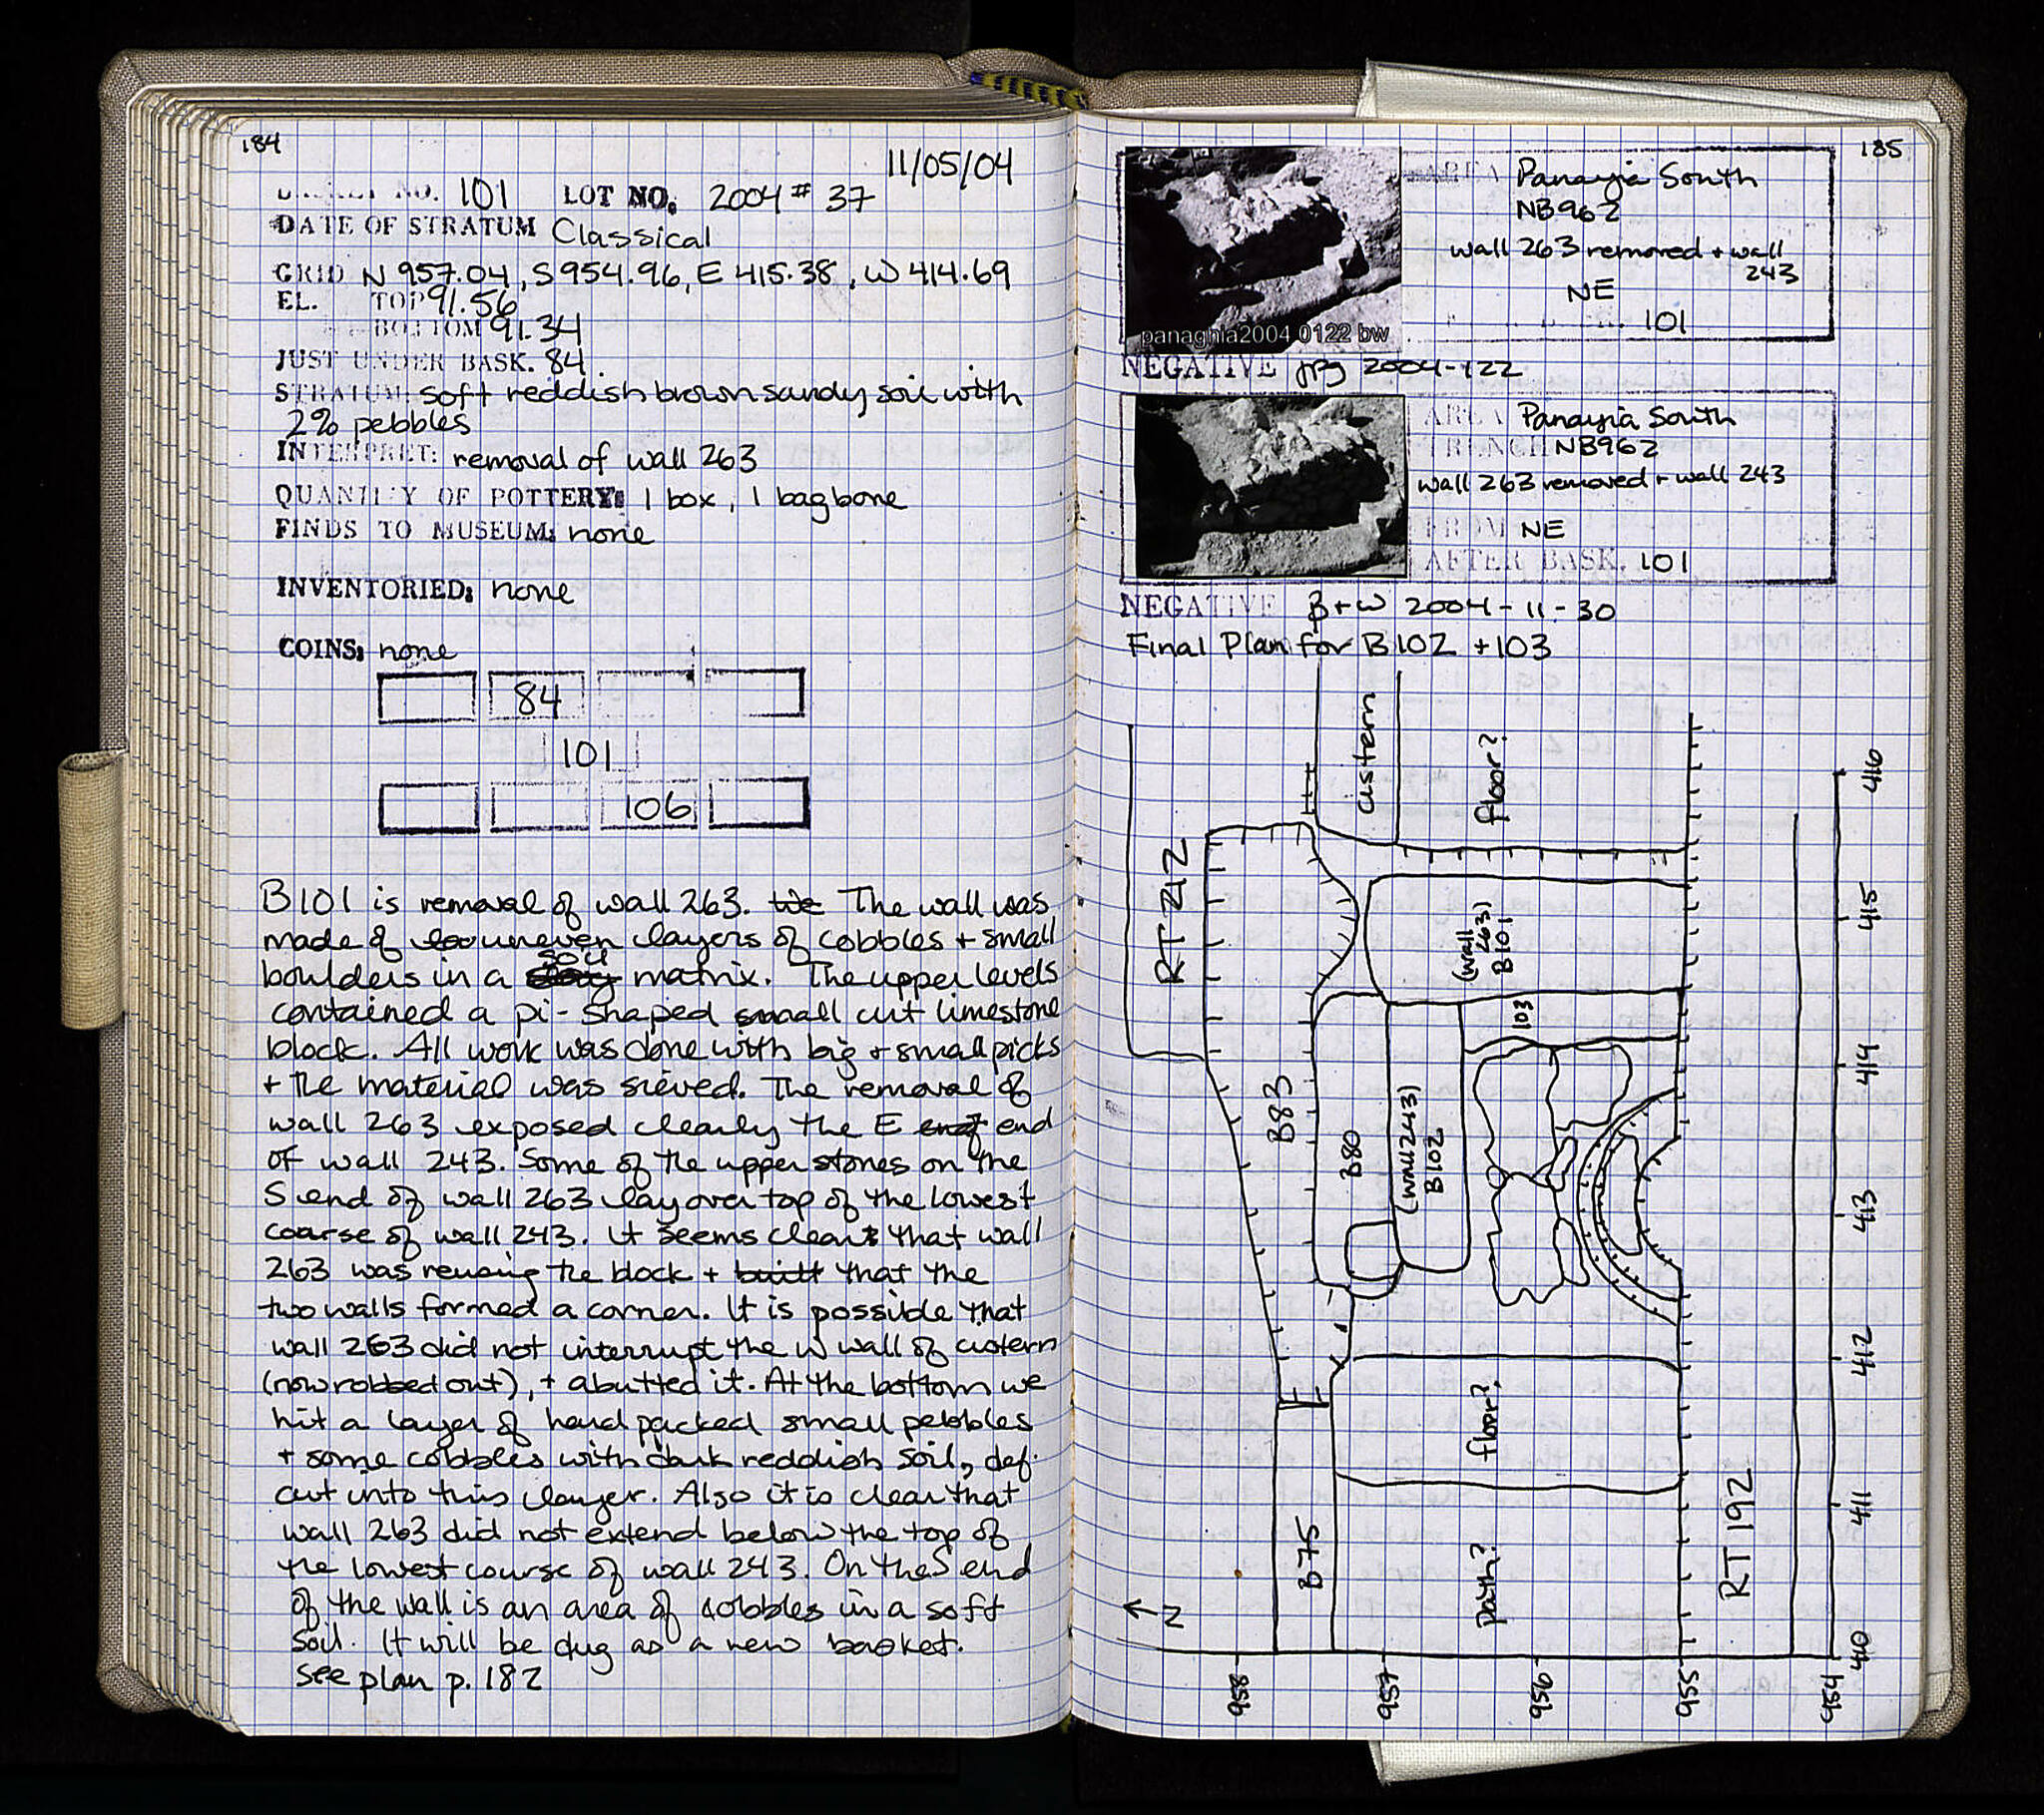 184
11/05/04
NO. 101 LOT NO. 2004 # 37
DATE OF STRATUM Classical
GRID N 957.04, S 954.96, E 415.38, W 414.69
EL. TOP 91.56
BOTTOM 91.34
JUST UNDER BASK. 84
STRATUM: soft reddish brown sandy soil with
2% pebbles
INTERPRET: removal of wall 263
QUANTITY OF POTTERY: 1 box, 1 bag bone
FINDS TO MUSEUM: none
INVENTORIED: none
COINS: none
84
101
106
B101 is removal of wall 263. The wall was
made of uneven layers of cobbles + small
boulders in a soil matrix. The upper levels
contained a pi-shaped small cut limestone
block. All work was done with big + small picks
+ the material was sieved. The removal of
wall 263 exposed clearly the E end
of wall 243. Some of the upper stones on the
S end of wall 263 lay over top of the lowest
coarse of wall 243. It seems clear that wall
263 was reusing the block + built that the
two walls formed a corner. It is possible that
wall 263 did not interrupt the W wall of cistern
(now robbed out), + abutted it. At the bottom we
hit a layer of hard packed small pebbles
+ some cobbles with dark reddish soil, def.
cut into this layer. Also it is clear that
wall 263 did not extend below the top of
the lowest course of wall 243. On the S end
of the wall is an area of cobbles in a soft
soil. It will be dug as a new basket.
see plan p. 182
185
AREA Panayia South
NB962
wall 263 removed + wall
243
NE
101
panaghia2004 0122 bw
NEGATIVE jpg 2004-122
AREA Panayia South
TRENCH NB962
wall 263 removed + wall 243
FROM NE
AFTER BASK. 101
NEGATIVE B+W 2004-11-30
Final Plan for B102 + 103
cistern
floor?
416
RT 212
415
(wall
263)
B101
103
414
B83
B80
(wall 243)
B102
413
412
floor?
411
B75
path?
RT 192
N
410
958
957
956
955
954